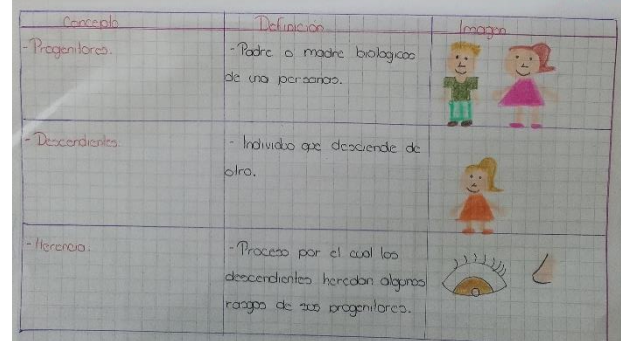 Concepto Definición Imagen
-Progenitores.
-Padre o madre biologicos
de una personas.
-Descendientes.
- Individuo que desciende de
otro.
-Herencia.
-Proceso por el cual los
descendientes heredan algunos
rasgos de sus progenitores.